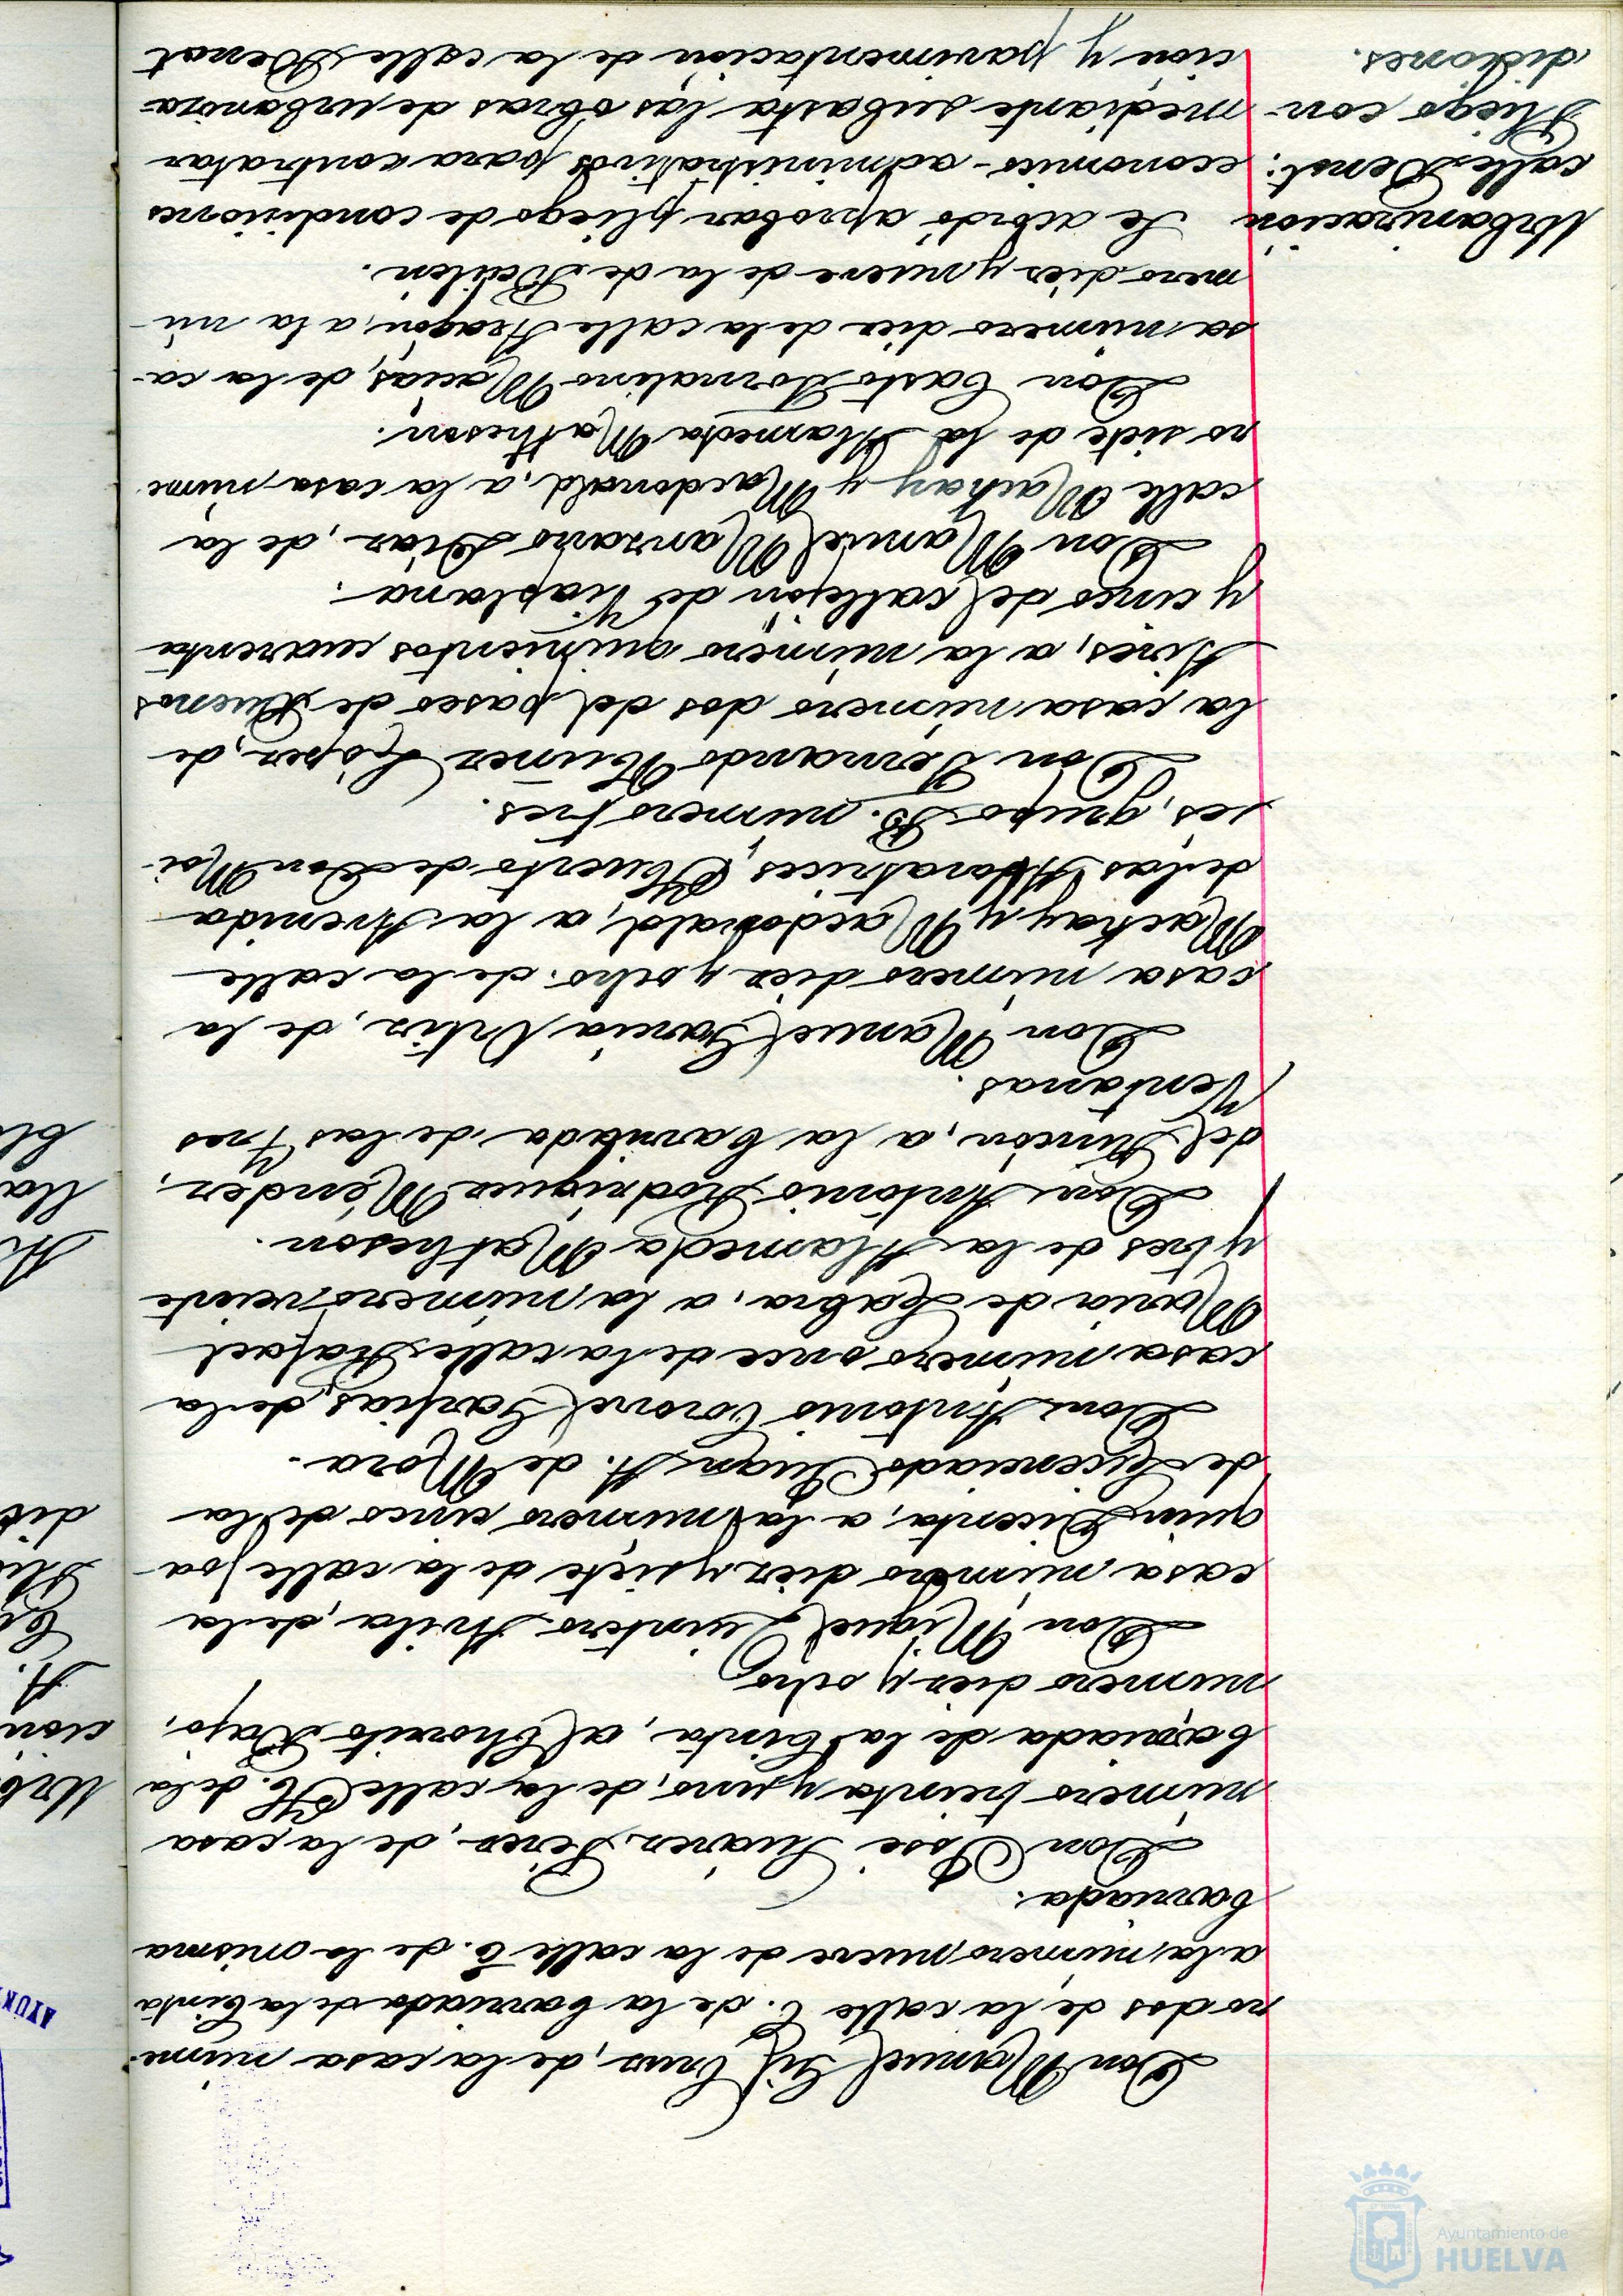 Don Manuel Gil Cruz, de la casa núme-
ro dos de la calle C. de la barriada de la Cinta
a la número nueve de la calle E. de la misma
barriada.
Don José Suárez Pérez, de la casa
número treinta y uno, de la calle H. de la
barriada de la Cinta, al Chorrito Bajo,
numero diez y ocho
Don Miguel Quintero Avila, de la
casa número diez y siete de la calle Joa-
quin Dicenta, a la número cinco de la
de Licenciado Juan A. de Mora.
Don Antonio Coronel Garfias, de la
casa número once de la calle Rafael
Maria de Labra, a la número veinte
y tres de la Alameda Matheson.
Don Antonio Rodríguez Méndez,
del Rincón, a la barriada de las Tres
Ventanas.
Don Manuel García Ortiz, de la
casa número diez y ocho, de la calle
Mackay y Macdonald, a la Avenida
de las Adoratrices, Huerto de Don Moi-
sés, grupo B. número tres.
Don Fernando Núñez López, de
la casa número dos del paseo de Buenos
Aires, a la número quinientos cuarenta
y cinco del callejón de Viaplana.
Don Manuel Manzano Díaz, de la
calle Mackay y Macdonald, a la casa núme-
ro siete de la Alameda Matheson.
Don Casto Tornalino Macías, de la ca-
sa número diez de la calle Aragón, a la nú-
mero diez y nueve de la de Bailén.
Urbanización
calle Benot:
Pliego con-
diciones.
Se acordó aprobar pliego de condiciones
económico-administrativos para contratar
mediante subasta las obras de urbaniza-
ción y pavimentación de la calle Benot
Ayuntamiento de
HUELVA